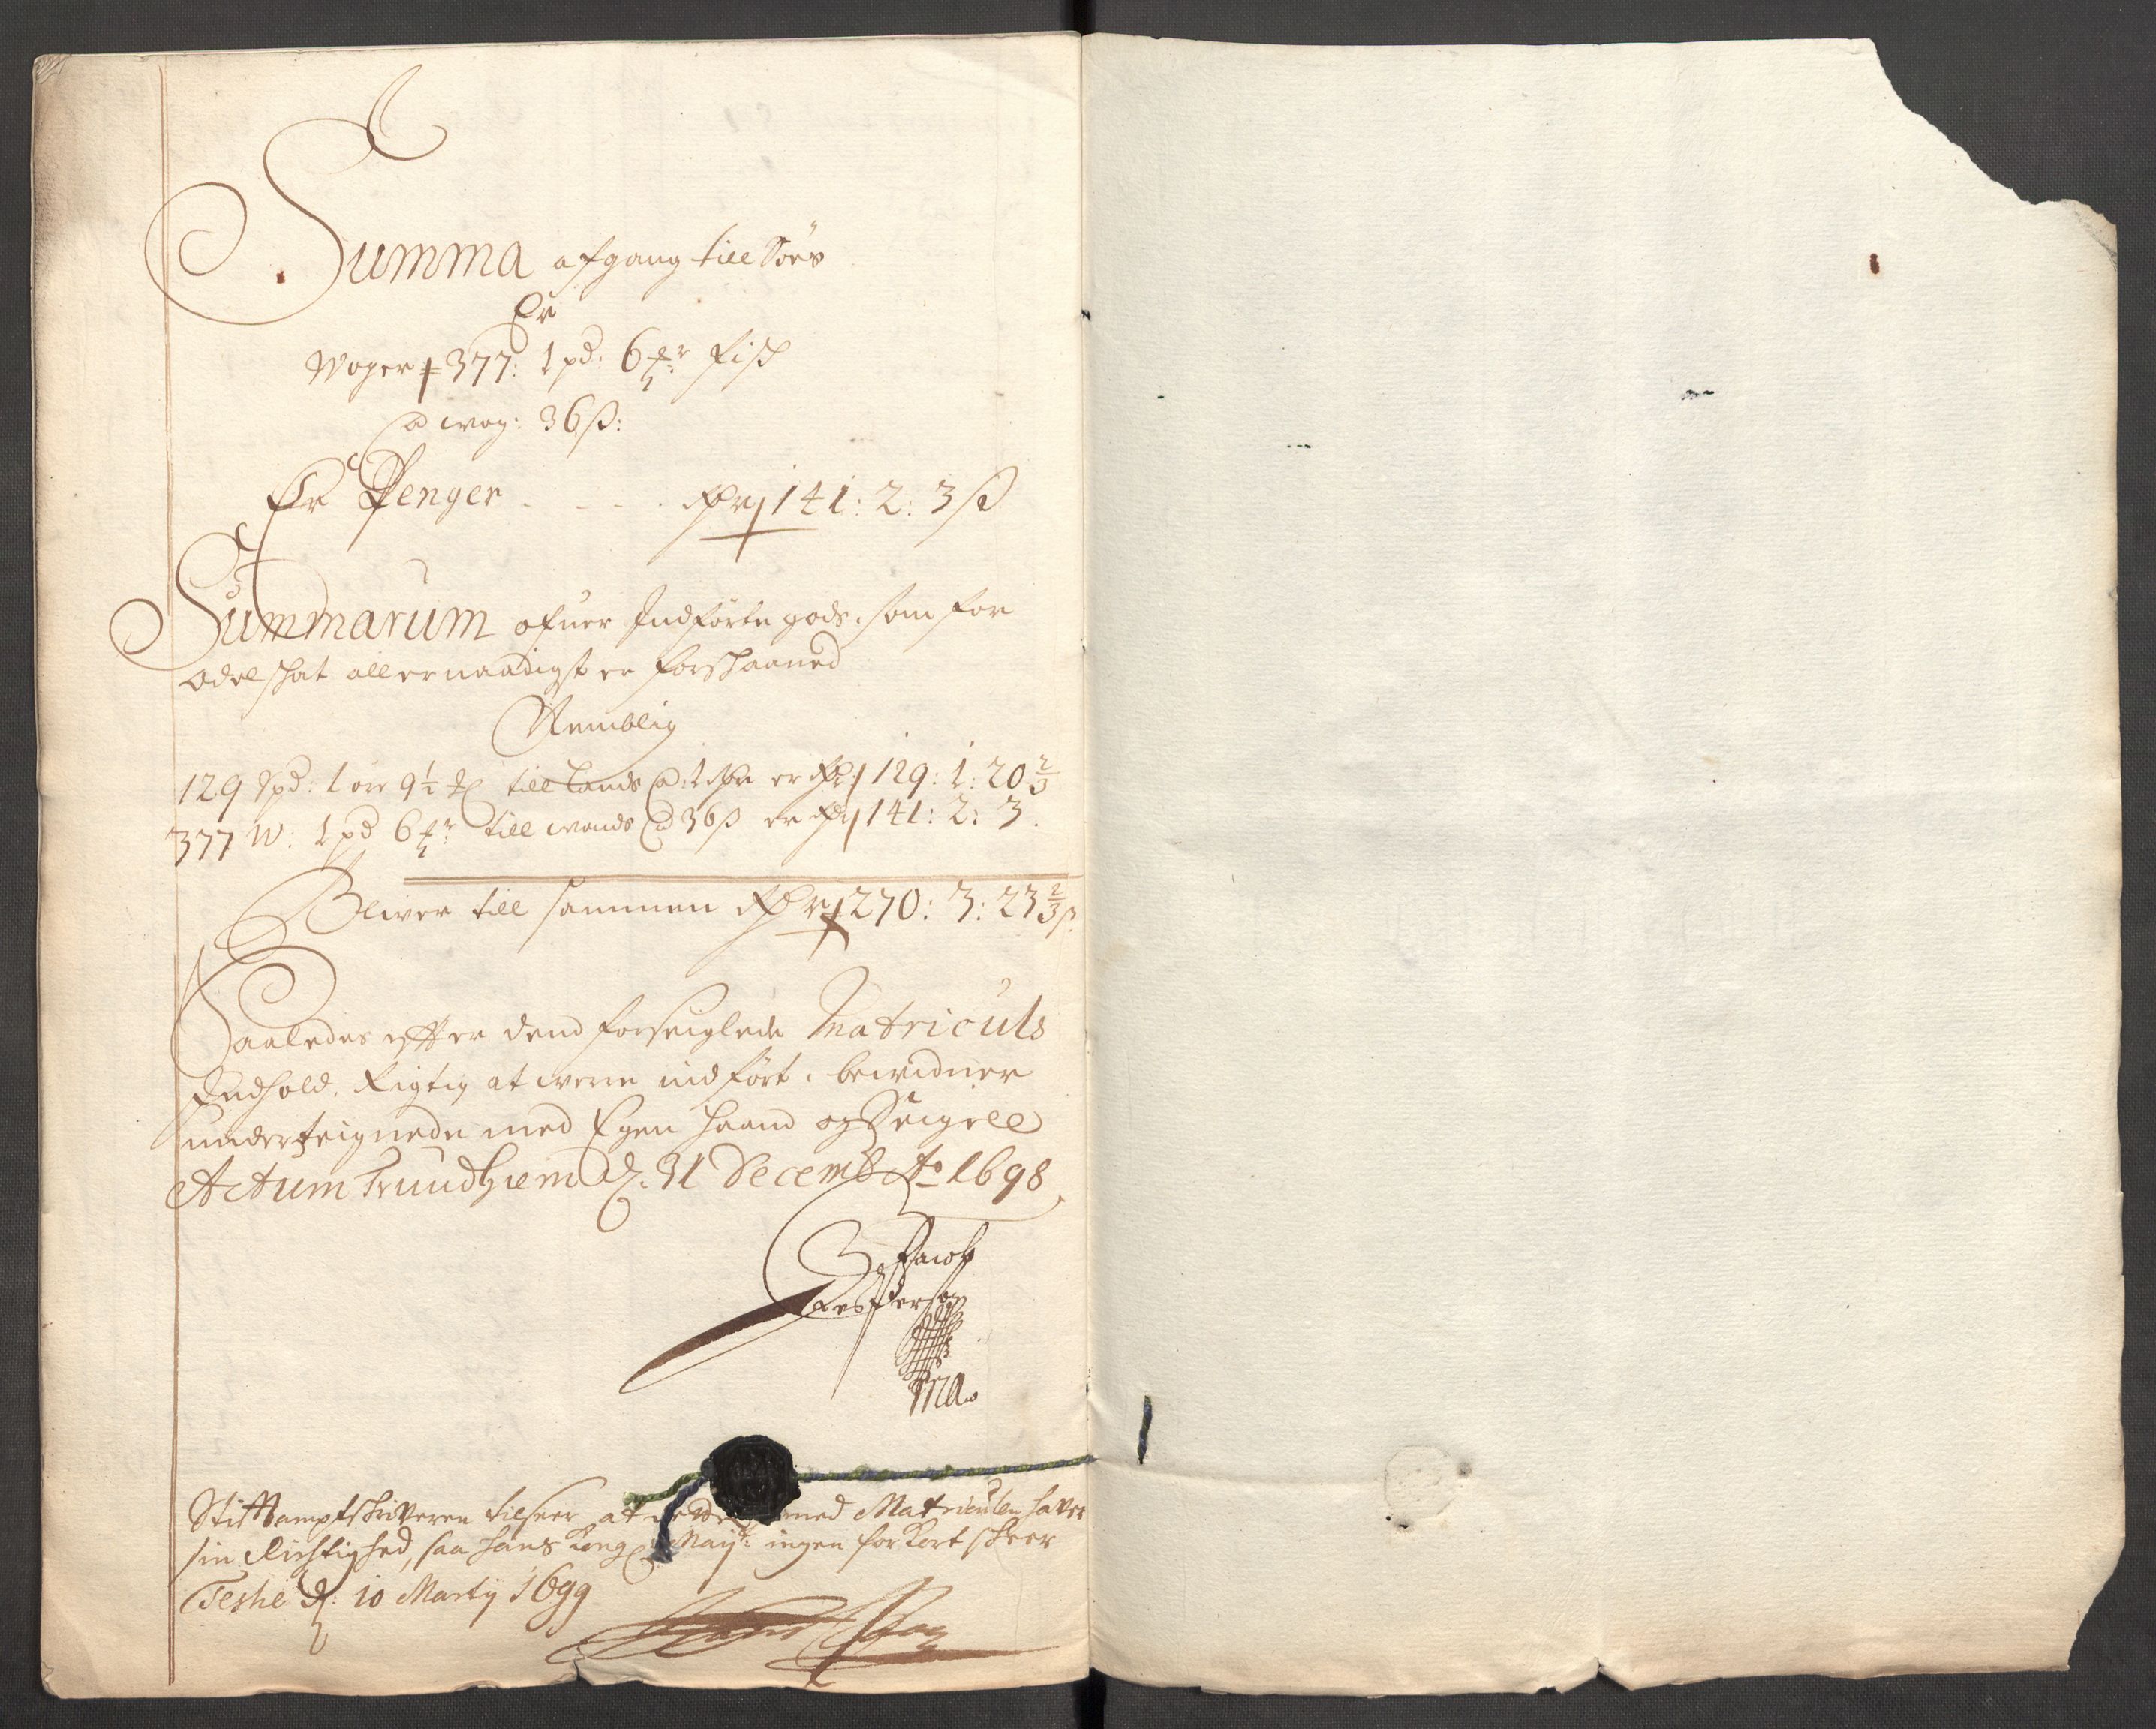 Summa afgang till Søes
Er
Woger 377: 1 pd: 6 fisk
a wog: 36 ß:
Er Penger - - - - 141: 2: 3 ß
Summarum ofuer Indførte gods, som for
odelskat allernaadigst er forskaaned
Nemblig
129 Spd: 1 ore 9½ till Lands a 1 er 129: 1: 20 2/3
377 W: 1 pd 6 till wands a 36 ß er 141: 2: 3.
Blwer till sammen 270: 3: 23 2/3 ß
Saaledes effter dend forseiglede Matriculs
Indhold, Rigtig at were indført, bewidner
underteignede med Egen haand og Seigell
Actum Trundhiem d. 31 Decemb Ao 1698
Jacob
Pedersøn
Stifftamptskriveren tilseer at med Matriculen haver
sin Richtighed, saa hans Kong Mayt: ingen forkort skeer
Teshe d: 10 Martij 1699